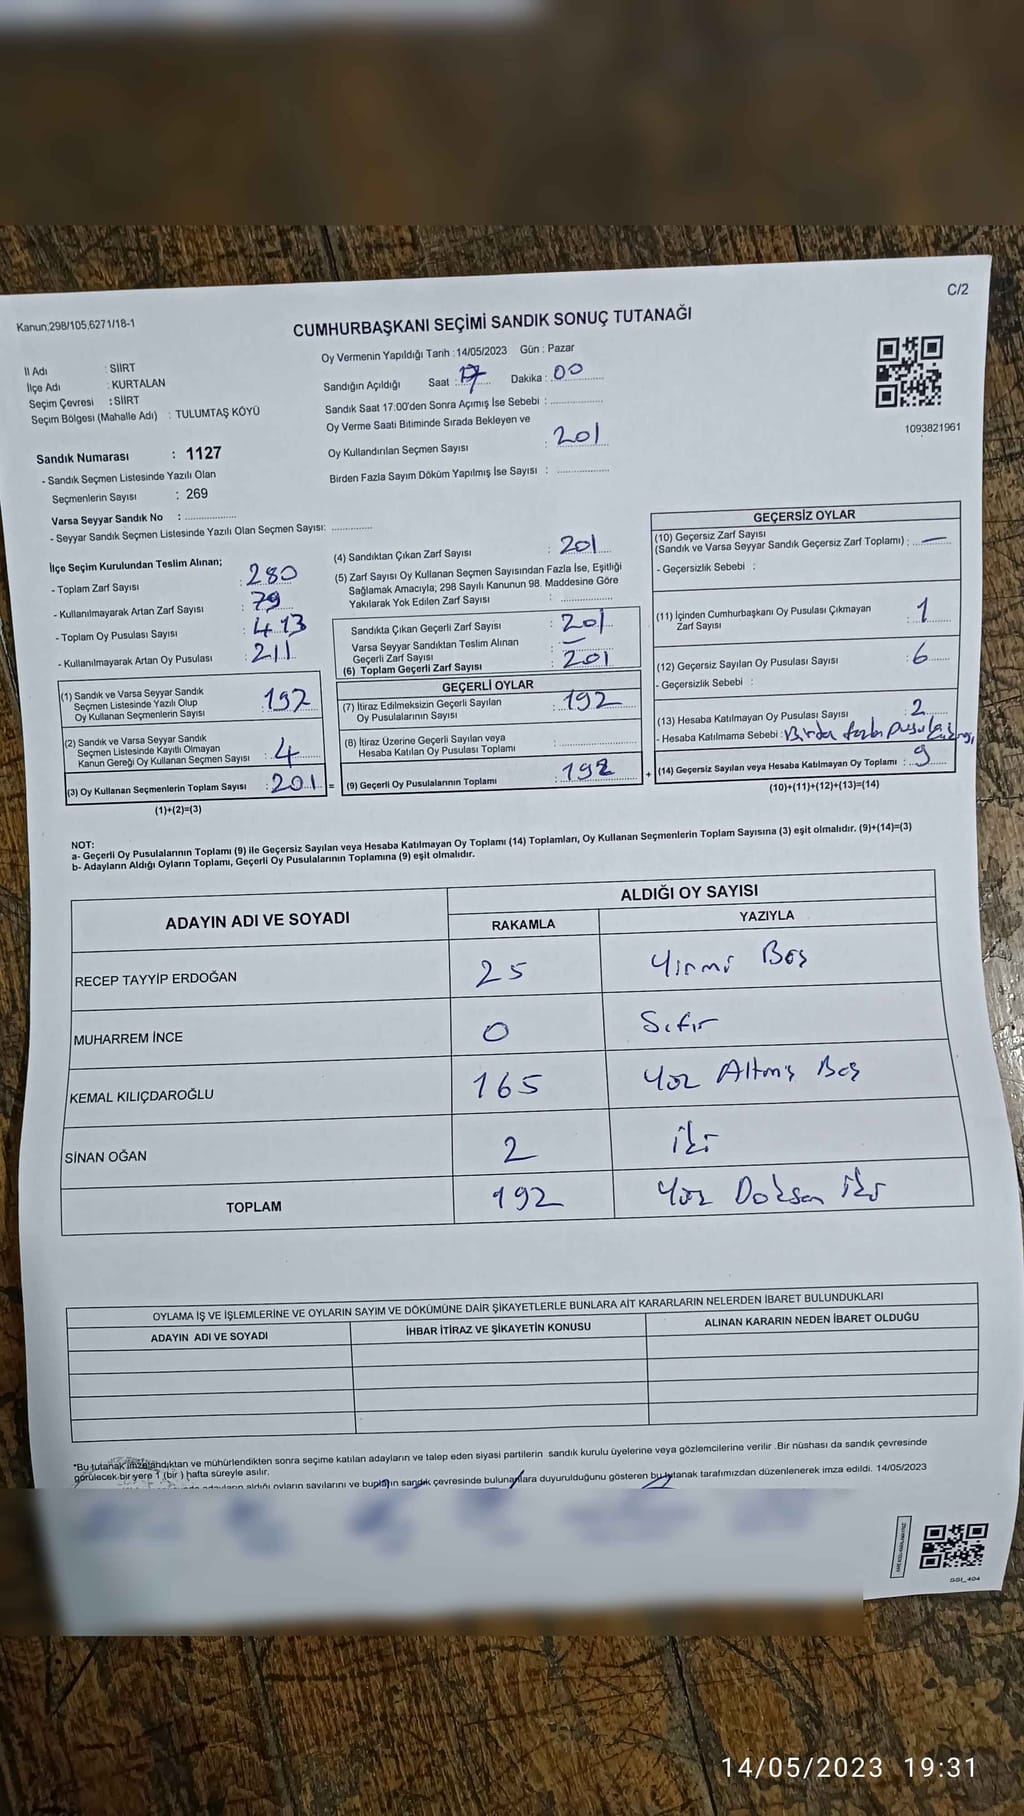 C/2
Kanun,298/105,6271/18-1
CUMHURBAŞKANI SEÇİMİ SANDIK SONUÇ TUTANAĞI
Oy Vermenin Yapıldığı Tarih :14/05/2023 Gün : Pazar
İl Adı : SİİRT
İlçe Adı : KURTALAN
Seçim Çevresi : SİİRT
Seçim Bölgesi (Mahalle Adı) : TULUMTAŞ KÖYÜ
Sandığın Açıldığı Saat : 17 Dakika : 00
Sandık Saat 17.00'den Sonra Açımış İse Sebebi :
Oy Verme Saati Bitiminde Sırada Bekleyen ve
Oy Kullandırılan Seçmen Sayısı : 201
Birden Fazla Sayım Döküm Yapılmış İse Sayısı :
1093821961
Sandık Numarası : 1127
- Sandık Seçmen Listesinde Yazılı Olan
Seçmenlerin Sayısı : 269
Varsa Seyyar Sandık No :
- Seyyar Sandık Seçmen Listesinde Yazılı Olan Seçmen Sayısı:
İlçe Seçim Kurulundan Teslim Alınan;
- Toplam Zarf Sayısı : 280
- Kullanılmayarak Artan Zarf Sayısı : 79
- Toplam Oy Pusulası Sayısı : 413
- Kullanılmayarak Artan Oy Pusulası : 211
(1) Sandık ve Varsa Seyyar Sandık
Seçmen Listesinde Yazılı Olup
Oy Kullanan Seçmenlerin Sayısı : 197
(2) Sandık ve Varsa Seyyar Sandık
Seçmen Listesinde Kayıtlı Olmayan
Kanun Gereği Oy Kullanan Seçmen Sayısı : 4
(3) Oy Kullanan Seçmenlerin Toplam Sayısı : 201 =
(1)+(2)=(3)
(4) Sandıktan Çıkan Zarf Sayısı : 201
(5) Zarf Sayısı Oy Kullanan Seçmen Sayısından Fazla İse, Eşitliği
Sağlamak Amacıyla; 298 Sayılı Kanunun 98. Maddesine Göre
Yakılarak Yok Edilen Zarf Sayısı :
Sandıkta Çıkan Geçerli Zarf Sayısı : 201
Varsa Seyyar Sandıktan Teslim Alınan
Geçerli Zarf Sayısı : —
(6) Toplam Geçerli Zarf Sayısı : 201
GEÇERLİ OYLAR
(7) İtiraz Edilmeksizin Geçerli Sayılan
Oy Pusulalarının Sayısı : 192
(8) İtiraz Üzerine Geçerli Sayılan veya
Hesaba Katılan Oy Pusulası Toplamı :
(9) Geçerli Oy Pusulalarının Toplamı : 192 +
GEÇERSİZ OYLAR
(10) Geçersiz Zarf Sayısı
(Sandık ve Varsa Seyyar Sandık Geçersiz Zarf Toplamı) : —
- Geçersizlik Sebebi :
(11) İçinden Cumhurbaşkanı Oy Pusulası Çıkmayan
Zarf Sayısı : 1
(12) Geçersiz Sayılan Oy Pusulası Sayısı : 6
- Geçersizlik Sebebi :
(13) Hesaba Katılmayan Oy Pusulası Sayısı : 2
- Hesaba Katılmama Sebebi : Birden fazla pusula
(14) Geçersiz Sayılan veya Hesaba Katılmayan Oy Toplamı : 9
(10)+(11)+(12)+(13)=(14)
NOT:
a- Geçerli Oy Pusulalarının Toplamı (9) ile Geçersiz Sayılan veya Hesaba Katılmayan Oy Toplamı (14) Toplamları, Oy Kullanan Seçmenlerin Toplam Sayısına (3) eşit olmalıdır. (9)+(14)=(3)
b- Adayların Aldığı Oyların Toplamı, Geçerli Oy Pusulalarının Toplamına (9) eşit olmalıdır.
ADAYIN ADI VE SOYADI ALDIĞI OY SAYISI
RAKAMLA YAZIYLA
RECEP TAYYİP ERDOĞAN 25 Yirmi Beş
MUHARREM İNCE 0 Sıfır
KEMAL KILIÇDAROĞLU 165 Yüz Altmış Beş
SİNAN OĞAN 2 iki
TOPLAM 192 Yüz Doksan iki
OYLAMA İŞ VE İŞLEMLERİNE VE OYLARIN SAYIM VE DÖKÜMÜNE DAİR ŞİKAYETLERLE BUNLARA AİT KARARLARIN NELERDEN İBARET BULUNDUKLARI
ADAYIN ADI VE SOYADI İHBAR İTİRAZ VE ŞİKAYETİN KONUSU ALINAN KARARIN NEDEN İBARET OLDUĞU
"Bu tutanak imzalandıktan ve mühürlendikten sonra seçime katılan adayların ve talep eden siyasi partilerin sandık kurulu üyelerine veya gözlemcilerine verilir .Bir nüshası da sandık çevresinde
görülecek bir yere 1 (bir ) hafta süreyle asılır.
adayların aldığı oyların sayılarını ve bunların sandık çevresinde bulunanlara duyurulduğunu gösteren bu tutanak tarafımızdan düzenlenerek imza edildi. 14/05/2023
SSI_404
14/05/2023 19:31